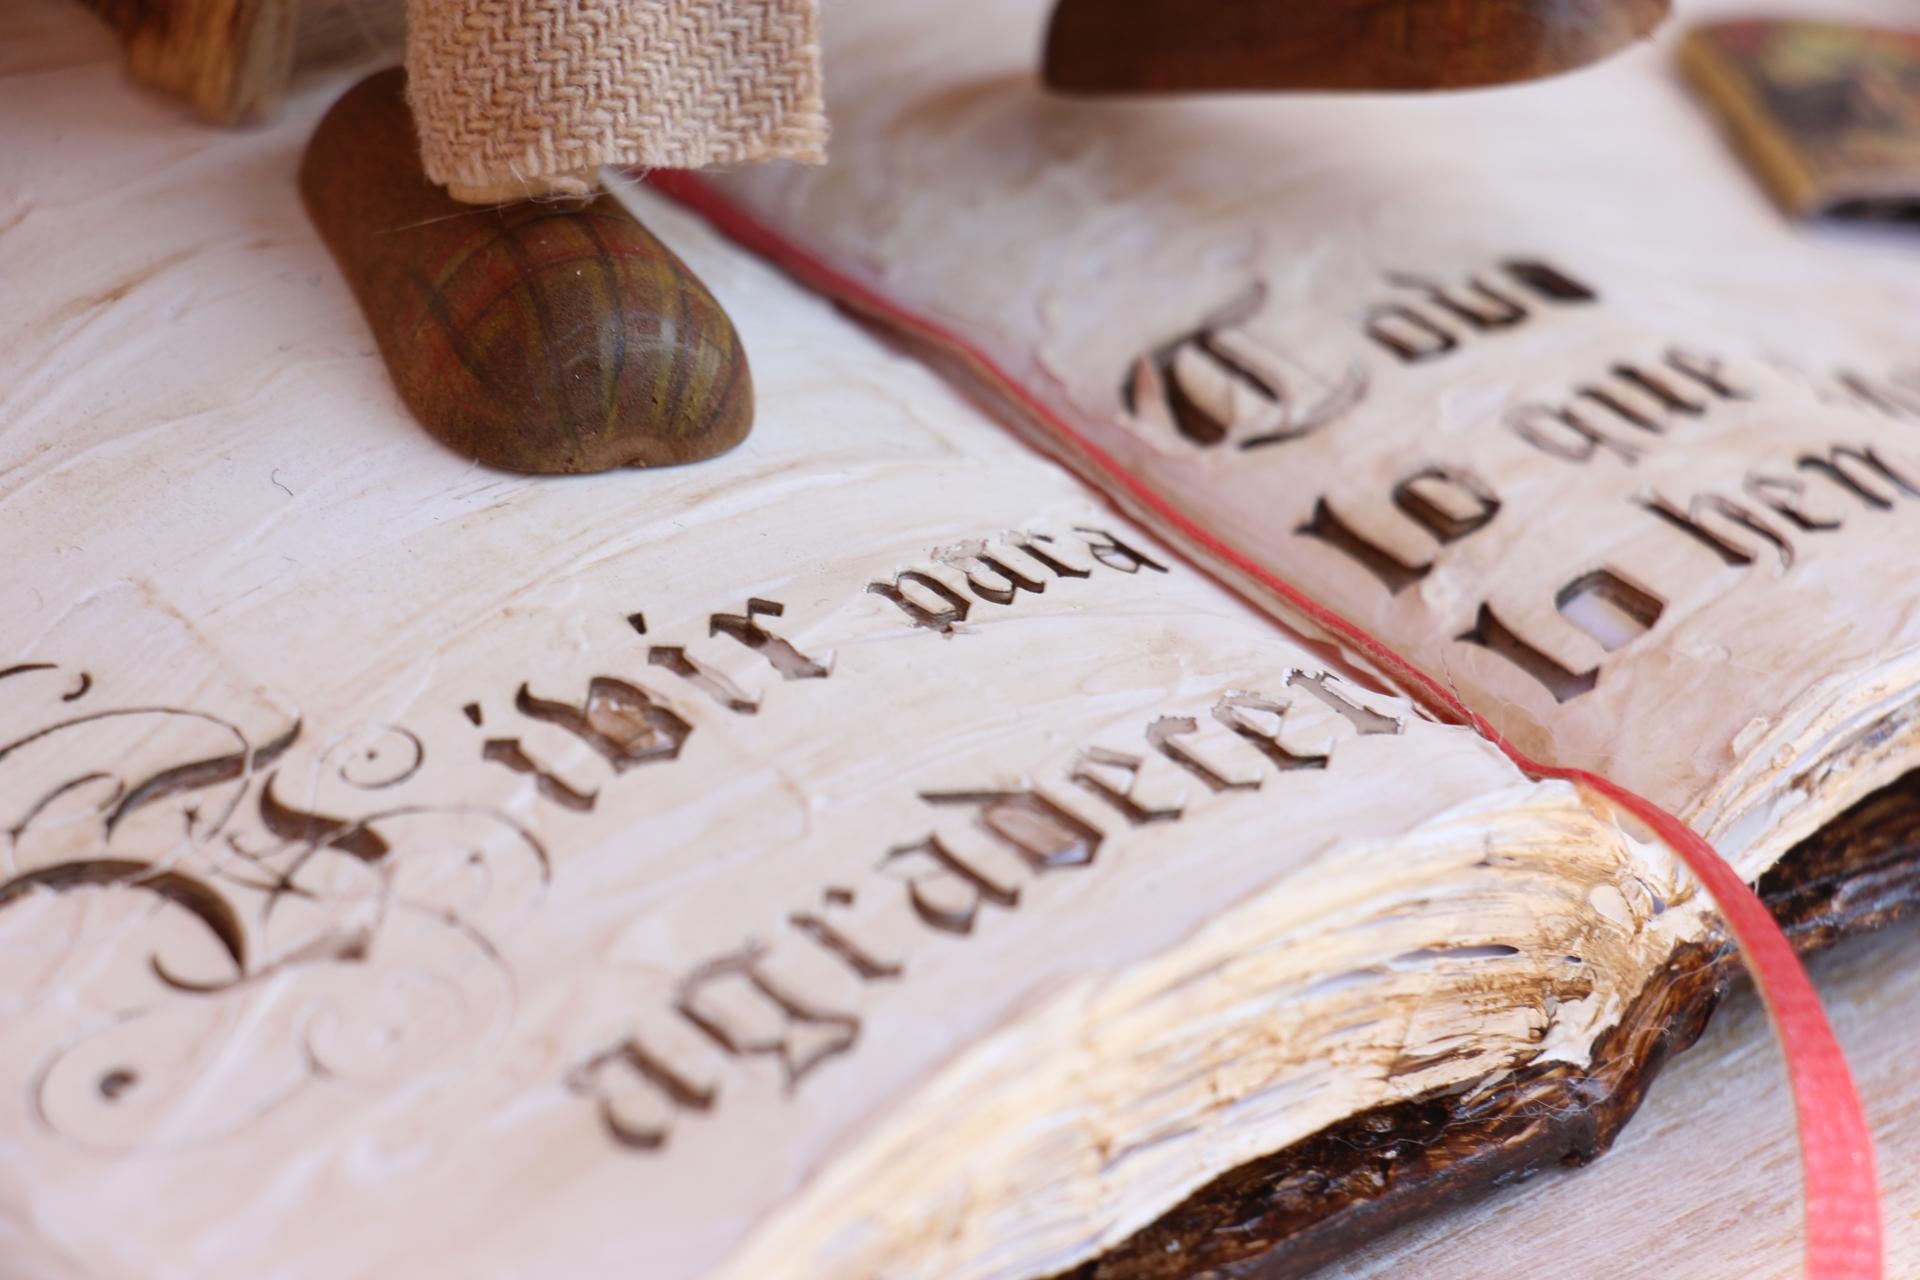 Vivir para
agradecer
Todo
lo que
lo hem